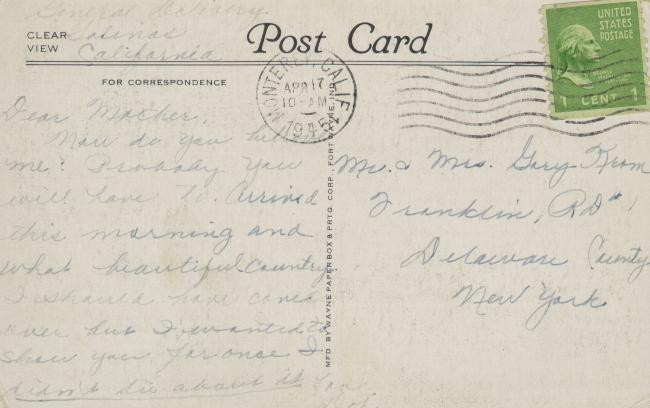 General Delivery
Salinas
California
CLEAR
VIEW
Post Card
FOR CORRESPONDENCE
MONTEREY, CALIF.
APR 17
10-AM
1945
UNITED
STATES
POSTAGE
1 CENT 1
Dear Mother,
Now do you
me? Probably you
will have to. Arrived
this morning and
what beautiful Country.
I should have come
over but I wanted to
show you for once I
didn't die about it Love
MFD BY WAYNE PAPER BOX & PRTG. CORP., FORT WAYNE, IND.
Mr. & Mrs. Gary Krom
Franklin, RD #1
Delaware County
New York